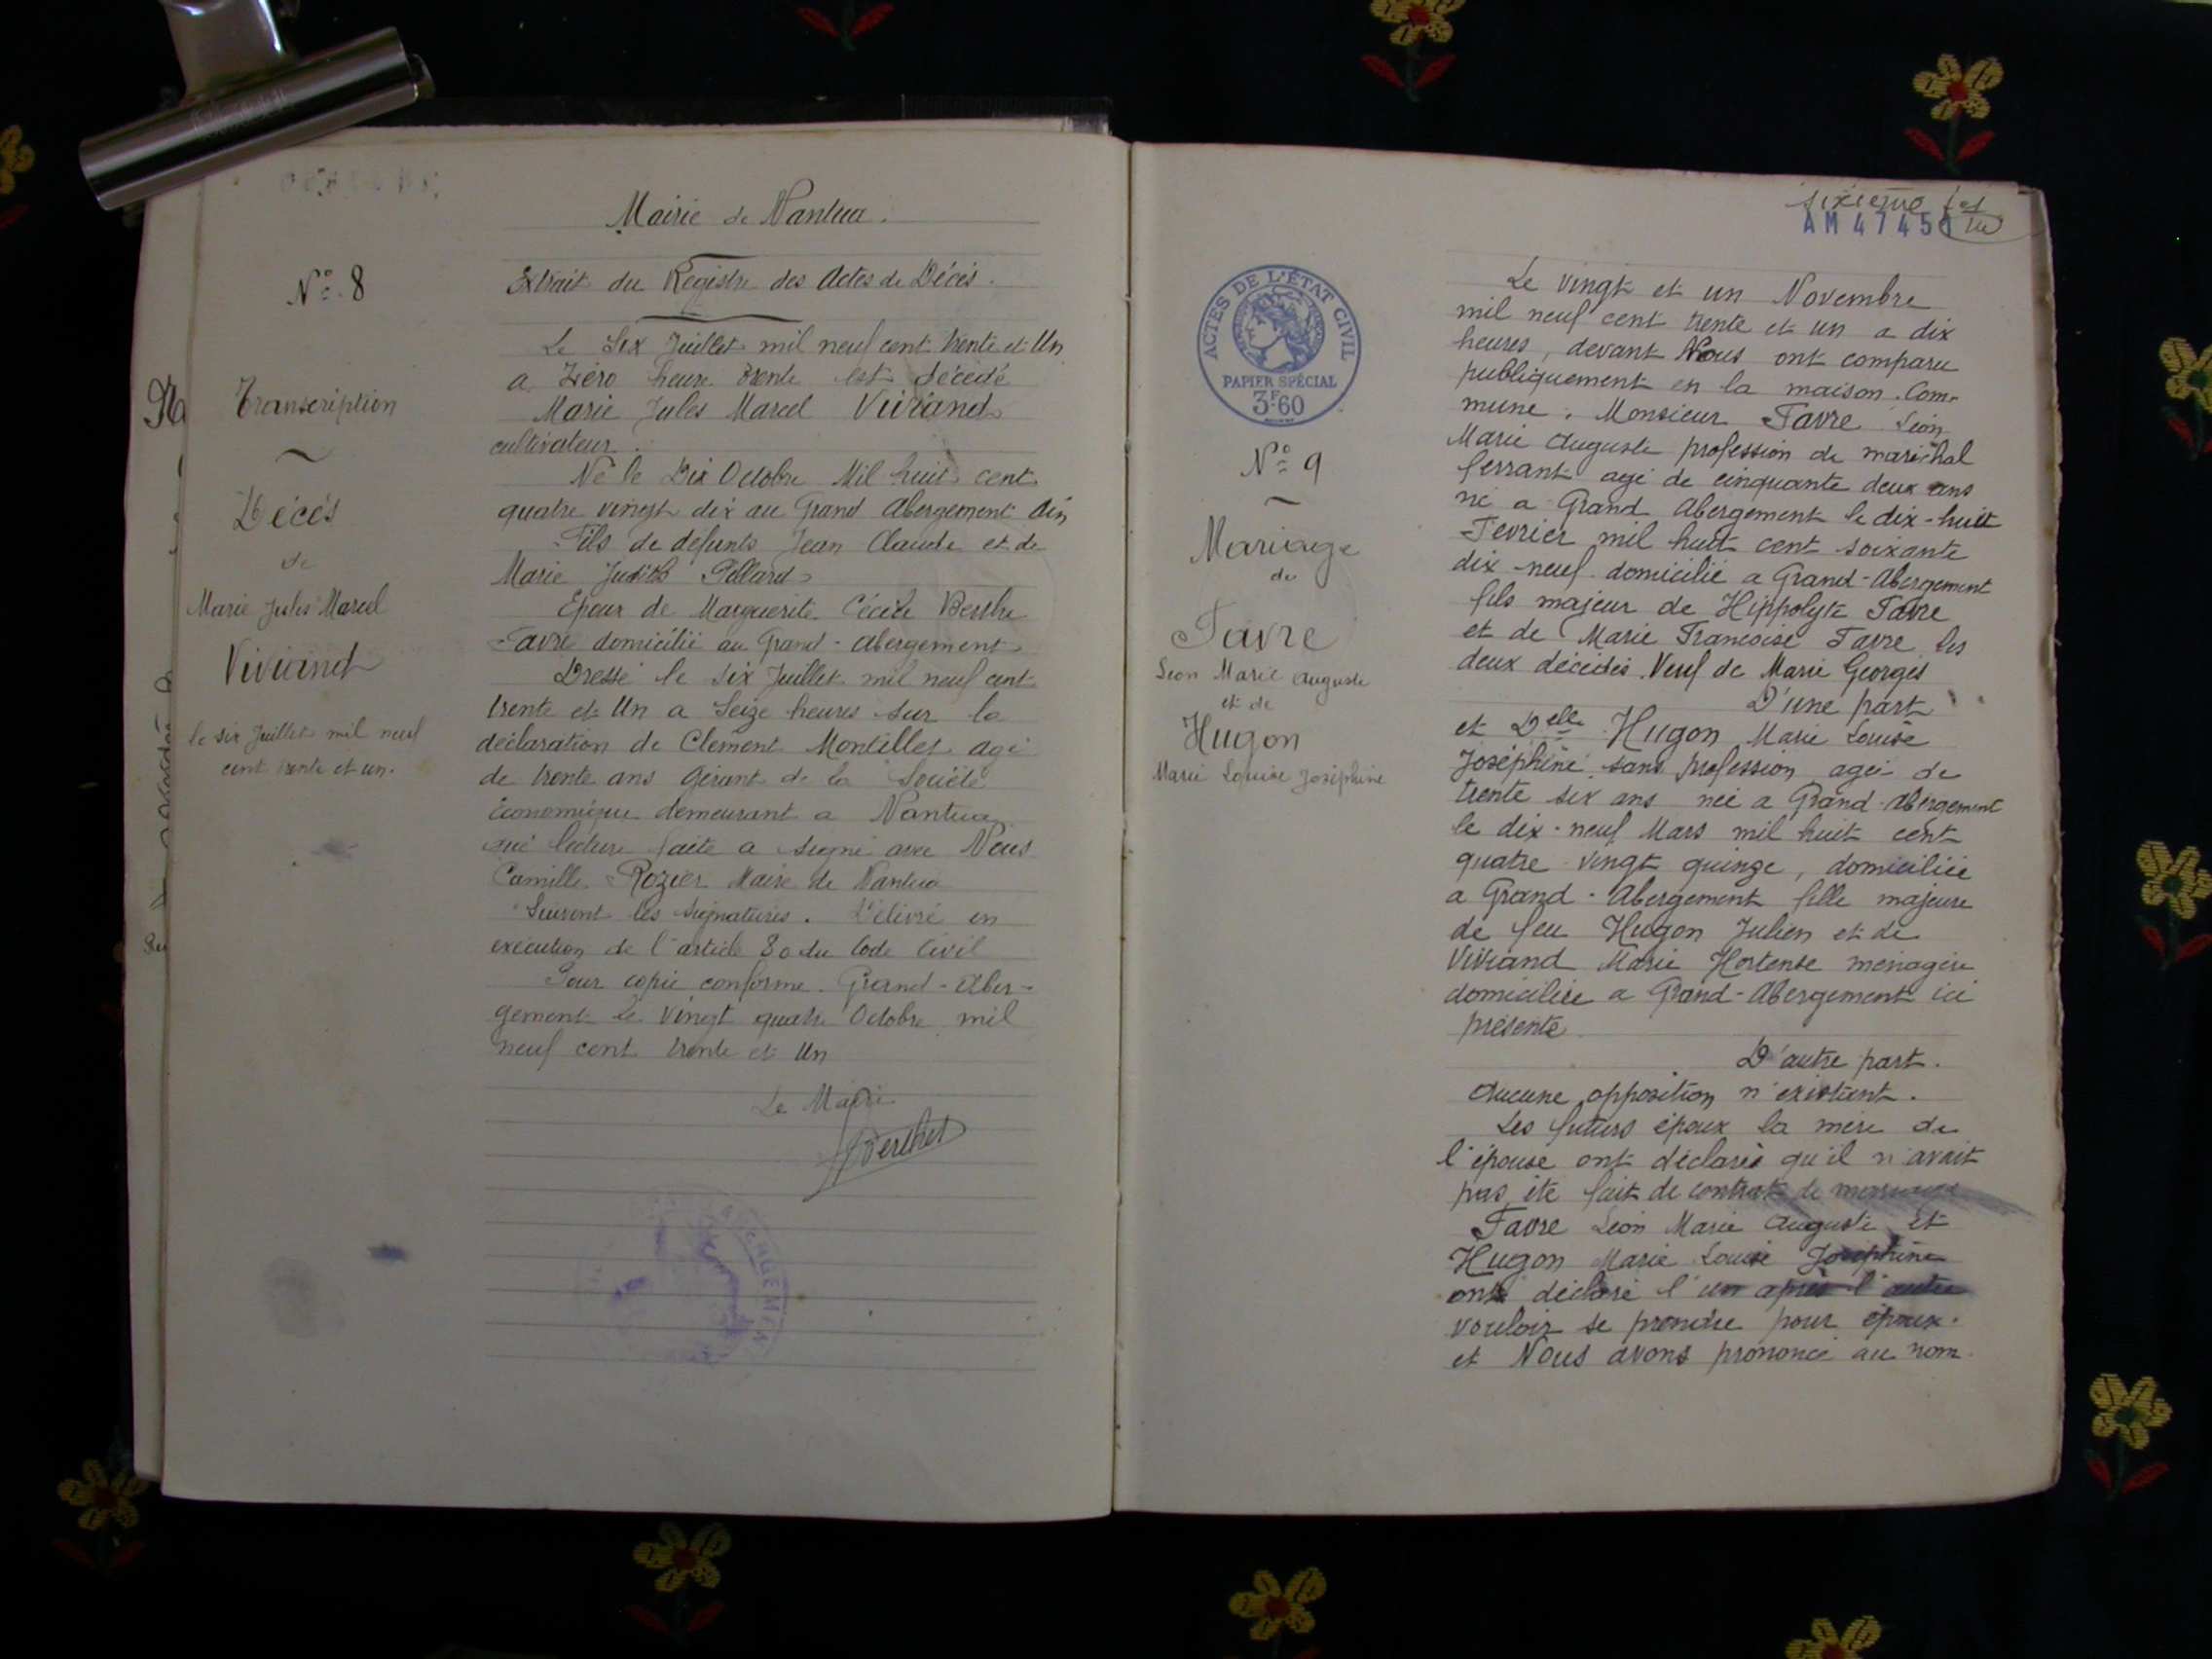 Mairie de Nantua.
Extrait du Registre des Actes de Décès.
N° 8
Transcription
Décès
de
Marie Jules Marcel
Viviand
le six Juillet mil neuf
cent trente et un.
Le Six Juillet mil neuf cent trente et Un
a Zéro heure trente est décédé
Marie Jules Marcel Viviand
cultivateur.
Né le Dix Octobre Mil huit cent
quatre vingt dix au Grand Abergement Ain
Fils de defunts Jean Claude et de
Marie Judith
Epoux de Marguerite Cécile Berthe
Favre domicilié au Grand-Abergement
Dressé le six Juillet mil neuf cent
trente et Un a Seize heures sur la
déclaration de Clément Montillet agé
de trente ans Gérant de la Société
Economique demeurant a Nantua
qui lecture faite a signé avec Nous
Camille Rozier Maire de Nantua
Suivent les signatures. Délivré en
exécution de l'article 80 du Code Civil
Pour copie conforme. Grand-Aber-
gement le Vingt quatre Octobre mil
neuf cent trente et Un
Le Maire
Berthet
sixième
AM 4745
ACTES DE L'ÉTAT CIVIL
PAPIER SPÉCIAL
3F60
N° 9
Mariage
de
Favre
Léon Marie Auguste
et de
Hugon
Marie Louise Joséphine
Le vingt et un Novembre
mil neuf cent trente et un a dix
heures, devant Nous ont comparu
publiquement en la maison Com-
mune. Monsieur Favre Léon
Marie Auguste profession de maréchal
ferrant agé de cinquante deux ans
né a Grand Abergement le dix-huit
Fevrier mil huit cent soixante
dix neuf domicilié a Grand-Abergement
fils majeur de Hippolyte Favre
et de Marie Francoise Favre les
deux décédés. Veuf de Marie Georges
D'une part
et Delle Hugon Marie Louise
Joséphine sans profession agée de
trente six ans née a Grand-Abergement
le dix-neuf Mars mil huit cent
quatre vingt quinze, domiciliée
a Grand-Abergement fille majeure
de feu Hugon Julien et de
Viviand Marie Hortense ménagère
domiciliée a Grand-Abergement ici
présente
D'autre part.
Aucune opposition n'existant.
Les futurs époux la mère de
l'épouse ont déclarés qu'il n'avait
pas été fait de contrat de mariage
Favre Léon Marie Auguste et
Hugon Marie Louise Joséphine
ont déclaré l'un après l'autre
vouloir se prendre pour époux.
et Nous avons prononcé au nom